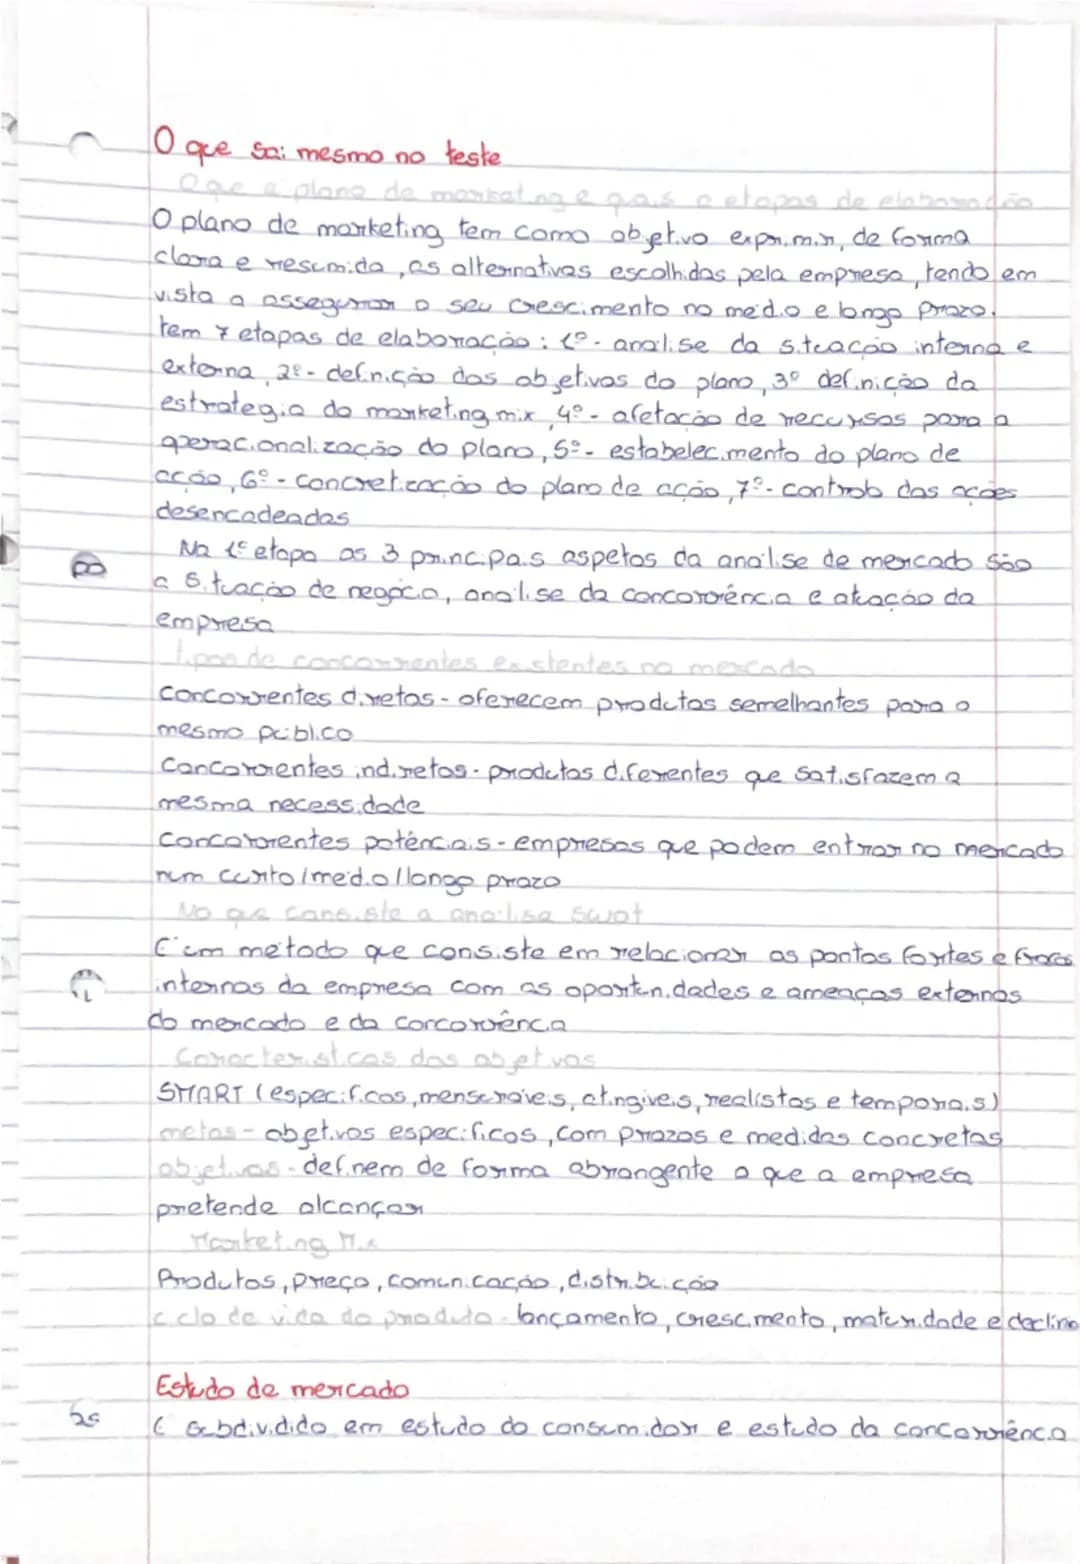 O que sai mesmo no teste
O que e plano de marketing e quais o etapas de elaboração
O plano de marketing tem como objetivo exprimir, de forma
clara e resumida, as alternativas escolhidas pela empresa, tendo em
vista a assegurar o seu crescimento no médio e longo prazo.
tem 7 etapas de elaboração: 1º- analise da situação interna e
externa, 2º- definição dos objetivos do plano, 3º definição da
estrategia do marketing mix, 4º- afetação de recursos para a
operacionalização do plano, 5º- estabelecimento do plano de
ação, 6º- concretização do plano de ação, 7º- controlo das ações
desencadeadas
Na 1º etapa os 3 principais aspetos da análise de mercado são
a situação de negócio, análise da concorrência e atuação da
empresa
tipos de concorrentes existentes no mercado
Concorrentes diretos - oferecem produtos semelhantes para o
mesmo público
Concorrentes indiretos - produtos diferentes que satisfazem a
mesma necessidade
Concorrentes potênciais - empresas que podem entrar no mercado
num curto/medio/longo prazo
No que consiste a analise swot
É um método que consiste em relacionar os pontos fortes e fracos
internos da empresa com as oportunidades e ameaças externas
do mercado e da concorrência
Caracteristicas dos objetivos
SMART (especificos, mensuráveis, atingiveis, realistas e temporais)
metas - objetivos especificos, com prazos e medidas concretas
objetivos - definem de forma abrangente o que a empresa
pretende alcançar
Marketing Mix
Produtos, preço, comunicação, distribuição
ciclo de vida do produto - lançamento, crescimento, maturidade e declinio
Estudo de mercado
É subdividido em estudo do consumidor e estudo da concorrência